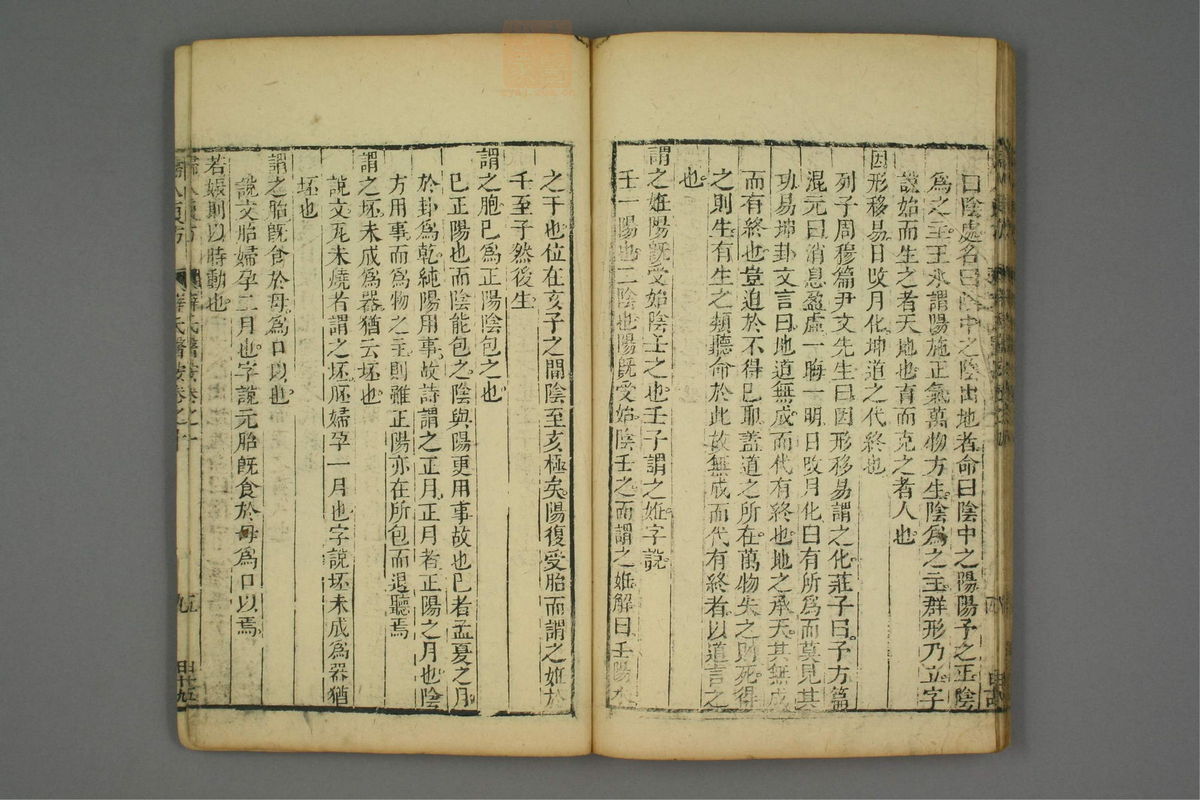 曰陰處名曰陰中之陰出地者命曰陰中之陽陽予之正陰
爲之主王氷謂陽施正氣萬物方生陰爲之主群形乃立字
說始而生之者天地也育而克之者人也
因形移易日改月化坤道之代終也
列子周穆篇尹文先生曰因形移易謂之化莊子曰子方篇
混元曰消息盈虛一晦一明日改月化曰有所爲而莫見其
功易坤卦文言曰地道無成而代有終也地之承天其無成
而有終也豈迫於不得已耶蓋道之所在萬物失之則死得
之則生有生之類聽命於此故無成而代有終者以道言之
也
謂之姙陽旣受始陰壬之也壬子謂之姙字說
壬一陽也二陰也陽旣受始陰壬之而謂之姙解曰壬陽水
之干也位在亥子之間陰至亥極矣陽復受胎而謂之姙於
壬至子然後生
謂之胞巳爲正陽陰包之也
巳正陽也而陰能包之陰與陽更用事故也巳者孟夏之月
於卦爲乾純陽用事故詩謂之正月正月者正陽之月也陰
方用事而爲物之主則雖正陽亦在所包而退聽焉
謂之坯未成爲器猶云坯也
說文瓦未燒者謂之坯胚婦孕一月也字說坯未成爲器猶
坯也
謂之胎旣食於母爲口以也
說文胎婦孕二月也字說元胎旣食於母爲口以焉
若娠則以時動也
薛氏醫按卷之
五
九